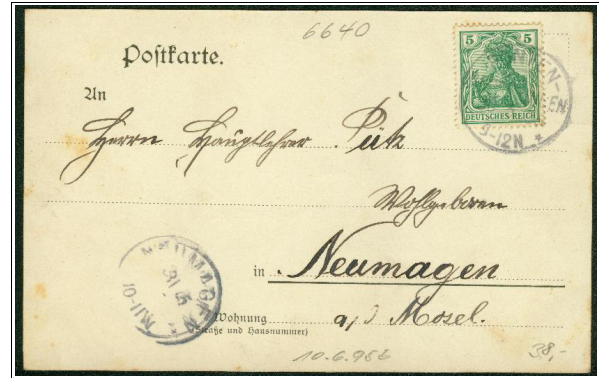 6640
Postkarte.
5 5
DEUTSCHES REICH
9-12N *
An
Herrn Hauptlehrer Pütz
Wohlgeboren
in Neumagen
NEUMAGEN
10-11N
Wohnung
(Straße und Hausnummer)
a/d Mosel.
38,-